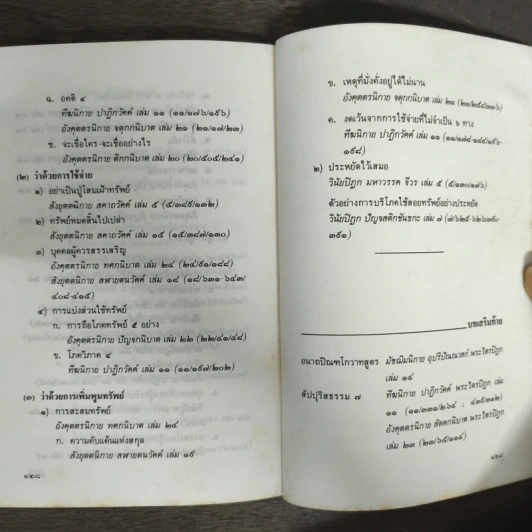 ฉ. อคติ ๔
ทีฆนิกาย ปาฏิกวัคค์ เล่ม ๑๑ (๑๑/๑๗๖/๑๙๖)
อังคุตตรนิกาย จตุกกนิบาต เล่ม ๒๑ (๒๑/๑๗/๒๓)
ช. จะเชื่อใคร-จะเชื่ออย่างไร
อังคุตตรนิกาย ติกกนิบาต เล่ม ๒๐ (๒๐/๕๐๕/๒๔๑)
(๒) ว่าด้วยการใช้จ่าย
๑) อย่าเป็นปู่โสมเฝ้าทรัพย์
สังยุตตนิกาย สคาถวัคค์ เล่ม ๕ (๕/๓๘๙/๑๓๒)
๒) ทรัพย์หมดสิ้นไปเปล่า
สังยุตตนิกาย สคาถวัคค์ เล่ม ๑๕ (๑๕/๓๘๗/๑๓๐)
๑) บุคคลผู้ควรสรรเสริญ
อังคุตตรนิกาย ทศกนิบาต เล่ม ๒๔ (๒๔/๙๑/๑๘๘)
สังยุตตนิกาย สฬายตนวัคค์ เล่ม ๑๘ (๑๘/๖๓๑-๖๔๓/
๔๐๘-๔๑๕)
๔) การแบ่งส่วนใช้ทรัพย์
ก. การถือโภคทรัพย์ ๕ อย่าง
อังคุตตรนิกาย ปัญจกนิบาต เล่ม ๒๒ (๒๒/๔๑/๔๘)
ข. โภควิภาค ๔
ทีฆนิกาย ปาฏิกวัคค์ เล่ม ๑๑ (๑๑/๑๙๗/๒๐๒)
(๓) ว่าด้วยการเพิ่มพูนทรัพย์
๑) การสะสมทรัพย์
อังคุตตรนิกาย ทศกนิบาต เล่ม ๒๔
ก. ความคับแค้นแห่งสกุล
สังยุตตนิกาย สฬายตนวัคค์ เล่ม ๑๘
๑๒๘
ข. เหตุที่มั่งคั่งอยู่ได้ไม่นาน
อังคุตตรนิกาย จตุกกนิบาต เล่ม ๒๑ (๒๑/๒๕๘/๓๓๖)
ค. งดเว้นจากการใช้จ่ายที่ไม่จำเป็น ๖ ทาง
ทีฆนิกาย ปาฏิกวัคค์ เล่ม ๑๑ (๑๑/๑๗๘-๑๘๔/๑๙๖-
๑๙๘)
๒) ประหยัดไว้เสมอ
วินัยปิฎก มหาวรรค จีวร เล่ม ๕ (๕/๑๓๐/๑๗๖)
ตัวอย่างการบริโภคใช้สอยทรัพย์อย่างประหยัด
วินัยปิฎก ปัญจสติกขันธกะ เล่ม ๗ (๗/๖๒๕-๖๒๖/๓๙๐-
๓๙๑)
บทเสริมท้าย
อนาถปิณฑโกวาทสูตร มัชฌิมนิกาย อุปริปัณณาสก์ พระไตรปิฎก
เล่ม ๑๔
สัปปุริสธรรม ๗ ทีฆนิกาย ปาฏิกวัคค์ พระไตรปิฎก เล่ม
๑๑ (๑๑/๓๓๑/๒๖๔ ; ๔๓๙/๓๑๒)
อังคุตตรนิกาย สัตตกนิบาต พระไตรปิฎก
เล่ม ๒๓ (๒๓/๖๕/๑๑๔)
๑๒๙